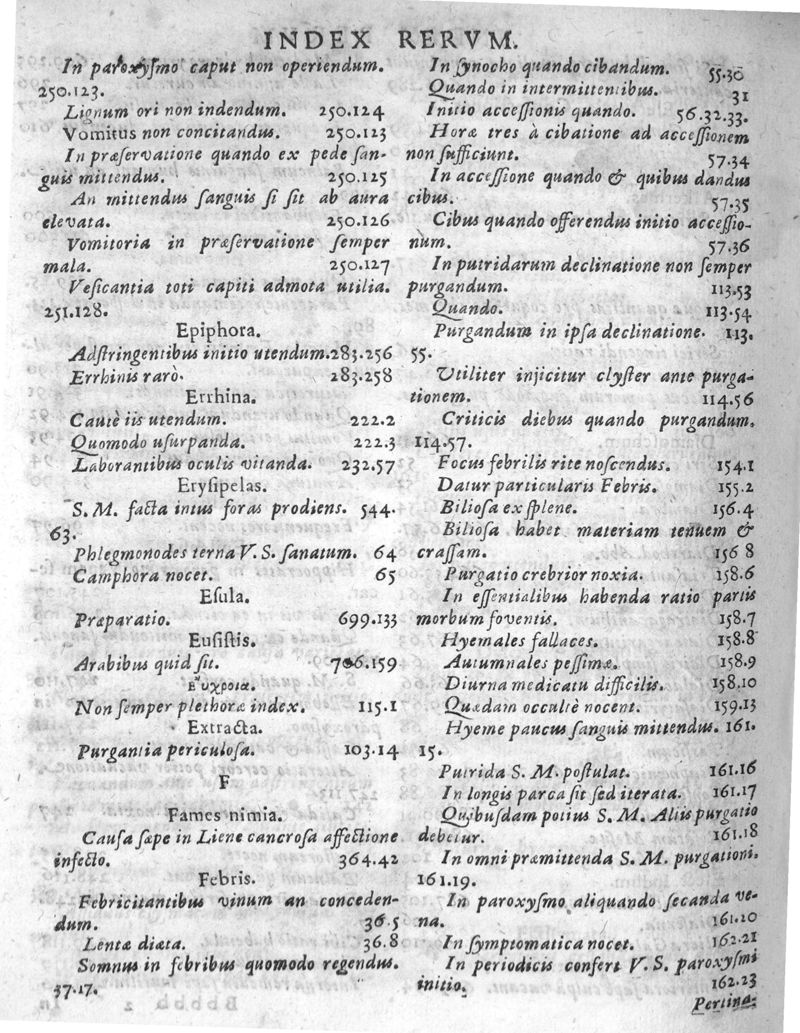 INDEX RERVM.
In paroxysmo caput non operiendum.
250.123.
Lignum ori non indendum. 250.124
Vomitus non concitandus. 250.123
In præservatione quando ex pede san-
guis mittendus. 250.125
An mittendus sanguis si sit ab aura
elevata. 250.126
Vomitoria in præservatione semper
mala. 250.127
Vesicantia toti capiti admota utilia.
251.128.
Epiphora.
Adstringentibus initio utendum. 283.256
Errhinis rarò. 283.258
Errhina.
Cautè iis utendum. 222.2
Quomodo usurpanda. 222.3
Laborantibus oculis vitanda. 232.57
Erysipelas.
S. M. facta intus foras prodiens. 544.
63.
Phlegmonodes terna V. S. sanatum. 64
Camphora nocet. 65
Esula.
Præparatio. 699.133
Eusistis.
Arabibus quid sit. 706.159
Εὔχροια.
Non semper plethoræ index. 115.1
Extracta.
Purgantia periculosa. 103.14
F
Fames nimia.
Causa sæpe in Liene cancrosa affectione
infecto. 364.42
Febris.
Febricitantibus vinum an conceden-
dum. 36.5
Lenta diæta. 36.8
Somnus in febribus quomodo regendus.
37.17.
In synocho quando cibandum. 55.30
Quando in intermittentibus. 31
Initio accessionis quando. 56.32.33.
Horæ tres à cibatione ad accessionem
non sufficiunt. 57.34
In accessione quando & quibus dandus
cibus. 57.35
Cibus quando offerendus initio accessio-
num. 57.36
In putridarum declinatione non semper
purgandum. 113.53
Quando. 113.54
Purgandum in ipsa declinatione. 113.
55.
Utiliter injicitur clyster ante purga-
tionem. 114.56
Criticis diebus quando purgandum.
114.57.
Focus febrilis rite noscendus. 154.1
Datur particularis Febris. 155.2
Biliosa ex splene. 156.4
Biliosa habet materiam tenuem &
crassam. 156 8
Purgatio crebrior noxia. 158.6
In essentialibus habenda ratio partis
morbum foventis. 158.7
Hyemales fallaces. 158.8
Autumnales pessimæ. 158.9
Diurna medicatu difficilis. 158.10
Quædam occultè nocent. 159.13
Hyeme paucus sanguis mittendus. 161.
15.
Putrida S. M. postulat. 161.16
In longis parca sit sed iterata. 161.17
Quibusdam potius S. M. Aliis purgatio
debetur. 161.18
In omni præmittenda S. M. purgationi.
161.19.
In paroxysmo aliquando secanda ve-
na. 161.20
In symptomatica nocet. 162.21
In periodicis confert V. S. paroxysmi
initio. 162.23
Pertina-